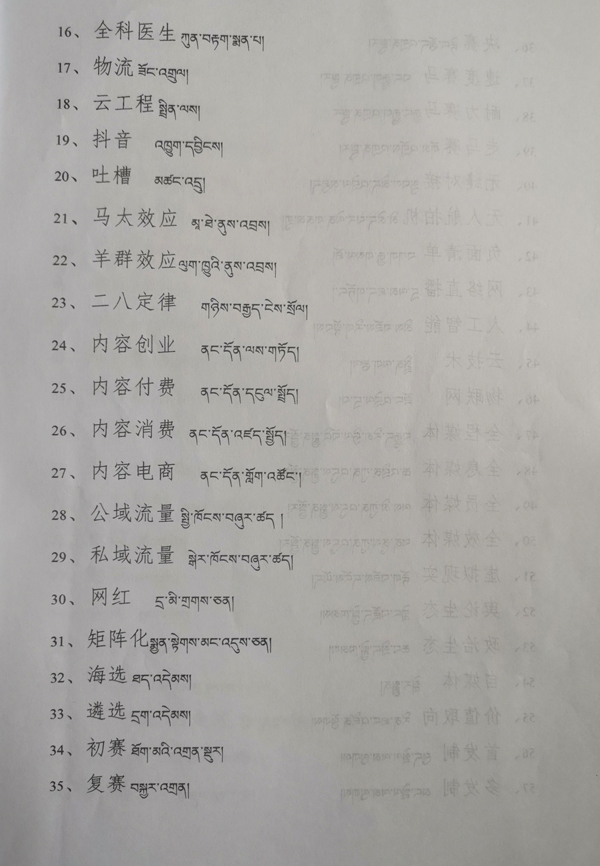 16、全科医生 ཀུན་བརྟག་སྨན་པ།
17、物流 ཟོང་འགྲུལ།
18、云工程 སྤྲིན་ལས།
19、抖音 འཁྱུག་དབྱིངས།
20、吐槽 མཚང་འདྲུ།
21、马太效应 མཱ་ཐེ་ནུས་འབྲས།
22、羊群效应 ལུག་ཁྱུའི་ནུས་འབྲས།
23、二八定律 གཉིས་བརྒྱད་ངེས་སྲོལ།
24、内容创业 ནང་དོན་ལས་གཏོད།
25、内容付费 ནང་དོན་དངུལ་སྤྲོད།
26、内容消费 ནང་དོན་འཛད་སྤྱོད།
27、内容电商 ནང་དོན་གློག་འཚོང་།
28、公域流量 སྤྱི་ཁོངས་བཞུར་ཚད །
29、私域流量 སྒེར་ཁོངས་བཞུར་ཚད།
30、网红 དྲ་མི་གྲགས་ཅན།
31、矩阵化 སྨྱན་སྟེགས་མང་འདུས་ཅན།
32、海选 ཐད་འདེམས།
33、遴选 དྲག་འདེམས།
34、初赛 ཐོག་མའི་འགྲན་སྡུར།
35、复赛 བསྐྱར་འགྲན།